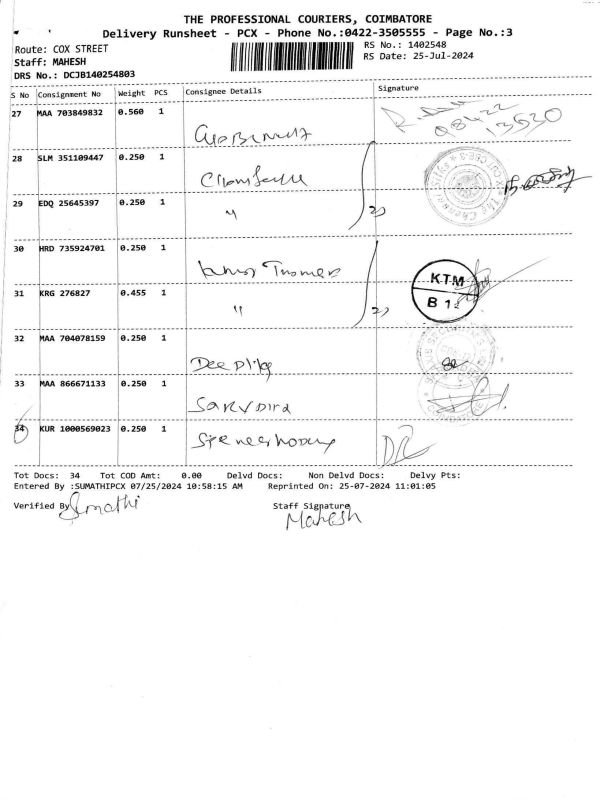 THE PROFESSIONAL COURIERS, COIMBATORE
Delivery Runsheet - PCX - Phone No.:0422-3505555 - Page No.:3
Route: COX STREET
RS No.: 1402548
Staff: MAHESH
RS Date: 25-Jul-2024
DRS No.: DCJB140254803
S No Consignment No Weight PCS Consignee Details Signature
27 MAA 703849832 0.560 1
98422
13520
28 SLM 351109447 0.250 1
29 EDQ 25645397 0.250 1 " 2)
30 HRD 735924701 0.250 1
K.T.M
31 KRG 276827 0.455 1 " 2)
B 12
32 MAA 704078159 0.250 1
33 MAA 866671133 0.250 1
34 KUR 1000569023 0.250 1
Tot Docs: 34 Tot COD Amt: 0.00 Delvd Docs: Non Delvd Docs: Delvy Pts:
Entered By :SUMATHIPCX 07/25/2024 10:58:15 AM Reprinted On: 25-07-2024 11:01:05
Verified By Sumathi Staff Signature
Mahesh